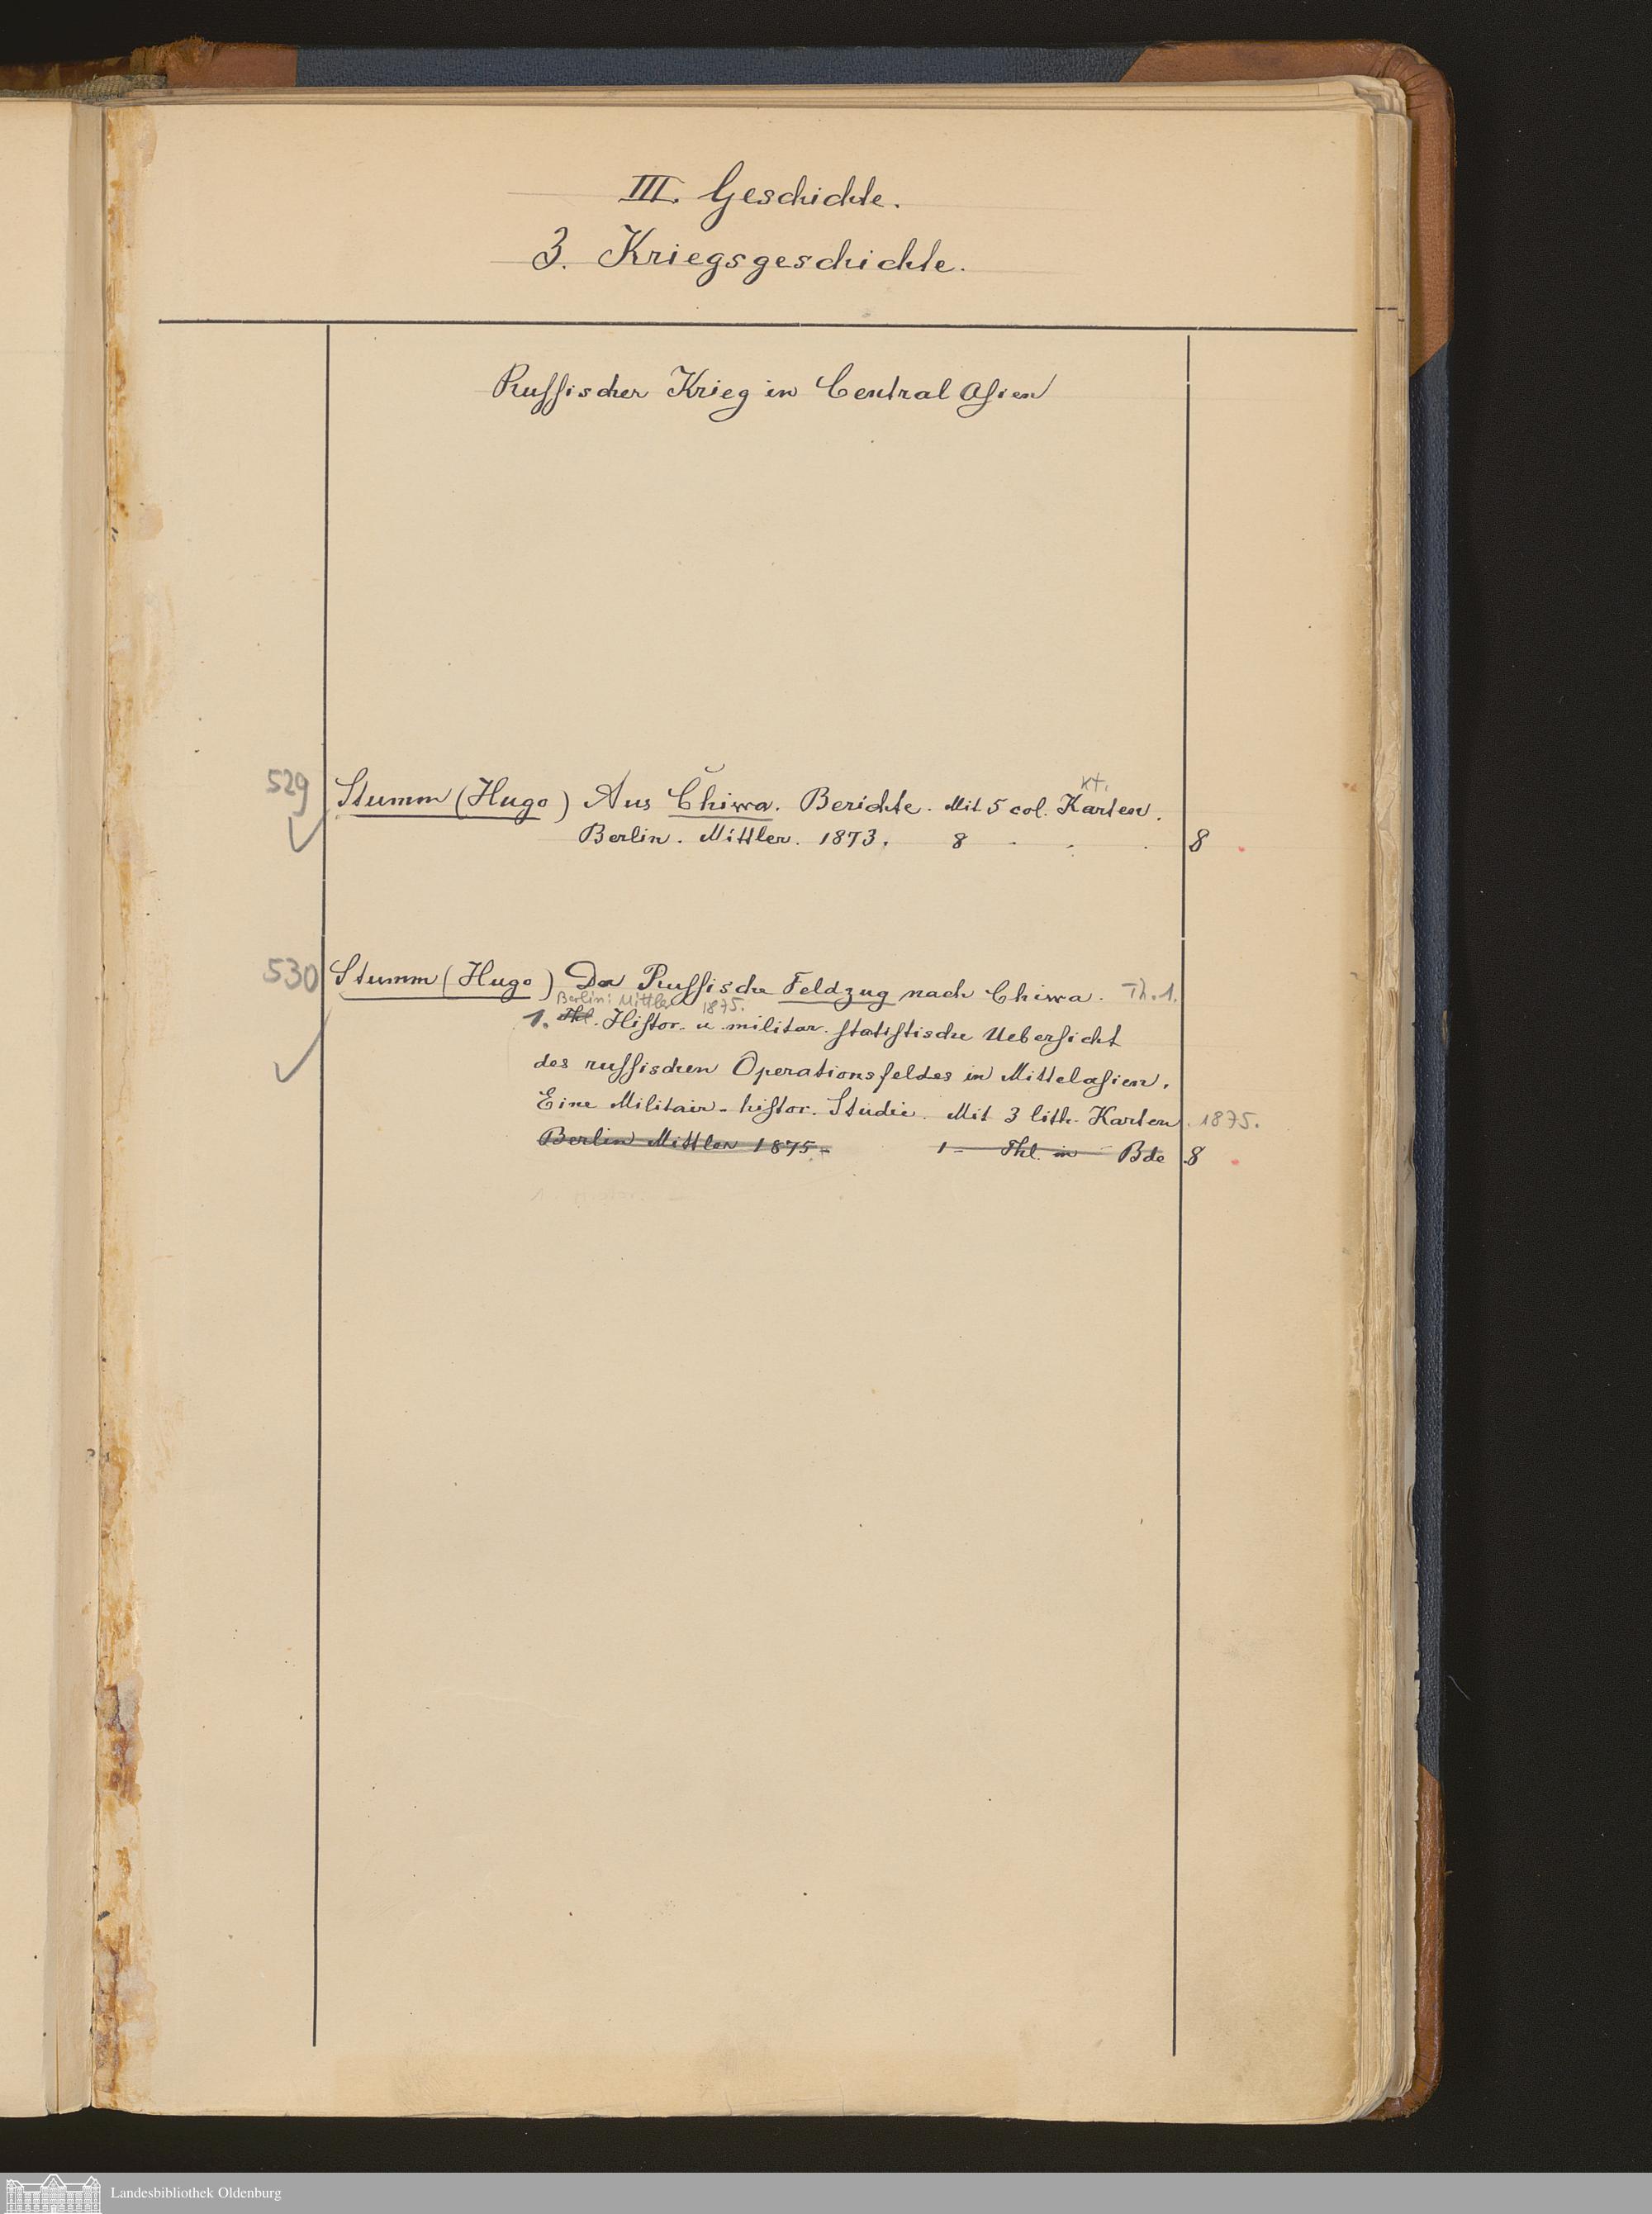 III. Geschichte.
3. Kriegsgeschichte.
Ruſſischer Krieg in Central Aſien
Kt.
529 Stumm (Hugo) Aus Chiwa. Berichte. Mit 5 col. Karten.
Berlin. Mittler. 1873. 8 . . . 8
530 Stumm (Hugo) Der Ruſſische Feldzug nach Chiwa. Th. 1.
Berlin: Mittler 1875.
1. Thl. Hiſtor. u. militar. ſtatiſtische Ueberſicht
des ruſſischen Operationsfeldes in Mittelaſien.
Eine Militair-hiſtor. Studie. Mit 3 lith. Karten. 1875.
Berlin Mittler 1875. 1 Thl. in Bde 8
Landesbibliothek Oldenburg